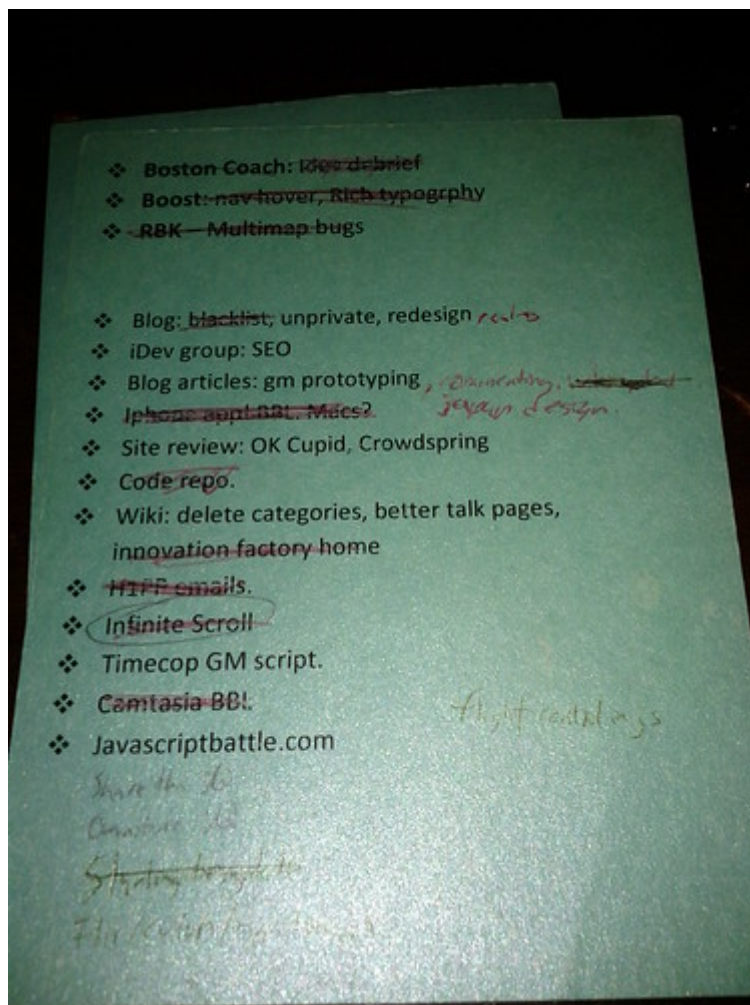 ❖ Boston Coach: Idev debrief
❖ Boost: nav hover, Rich typogrphy
❖ RBK – Multimap bugs
❖ Blog: blacklist, unprivate, redesign
❖ iDev group: SEO
❖ Blog articles: gm prototyping, commenting,
design.
❖ Iphone app! BBL. Macs?
❖ Site review: OK Cupid, Crowdspring
❖ Code repo.
❖ Wiki: delete categories, better talk pages,
innovation factory home
❖ H1PP emails.
❖ Infinite Scroll
❖ Timecop GM script.
❖ Camtasia BBL
❖ Javascriptbattle.com
Share the